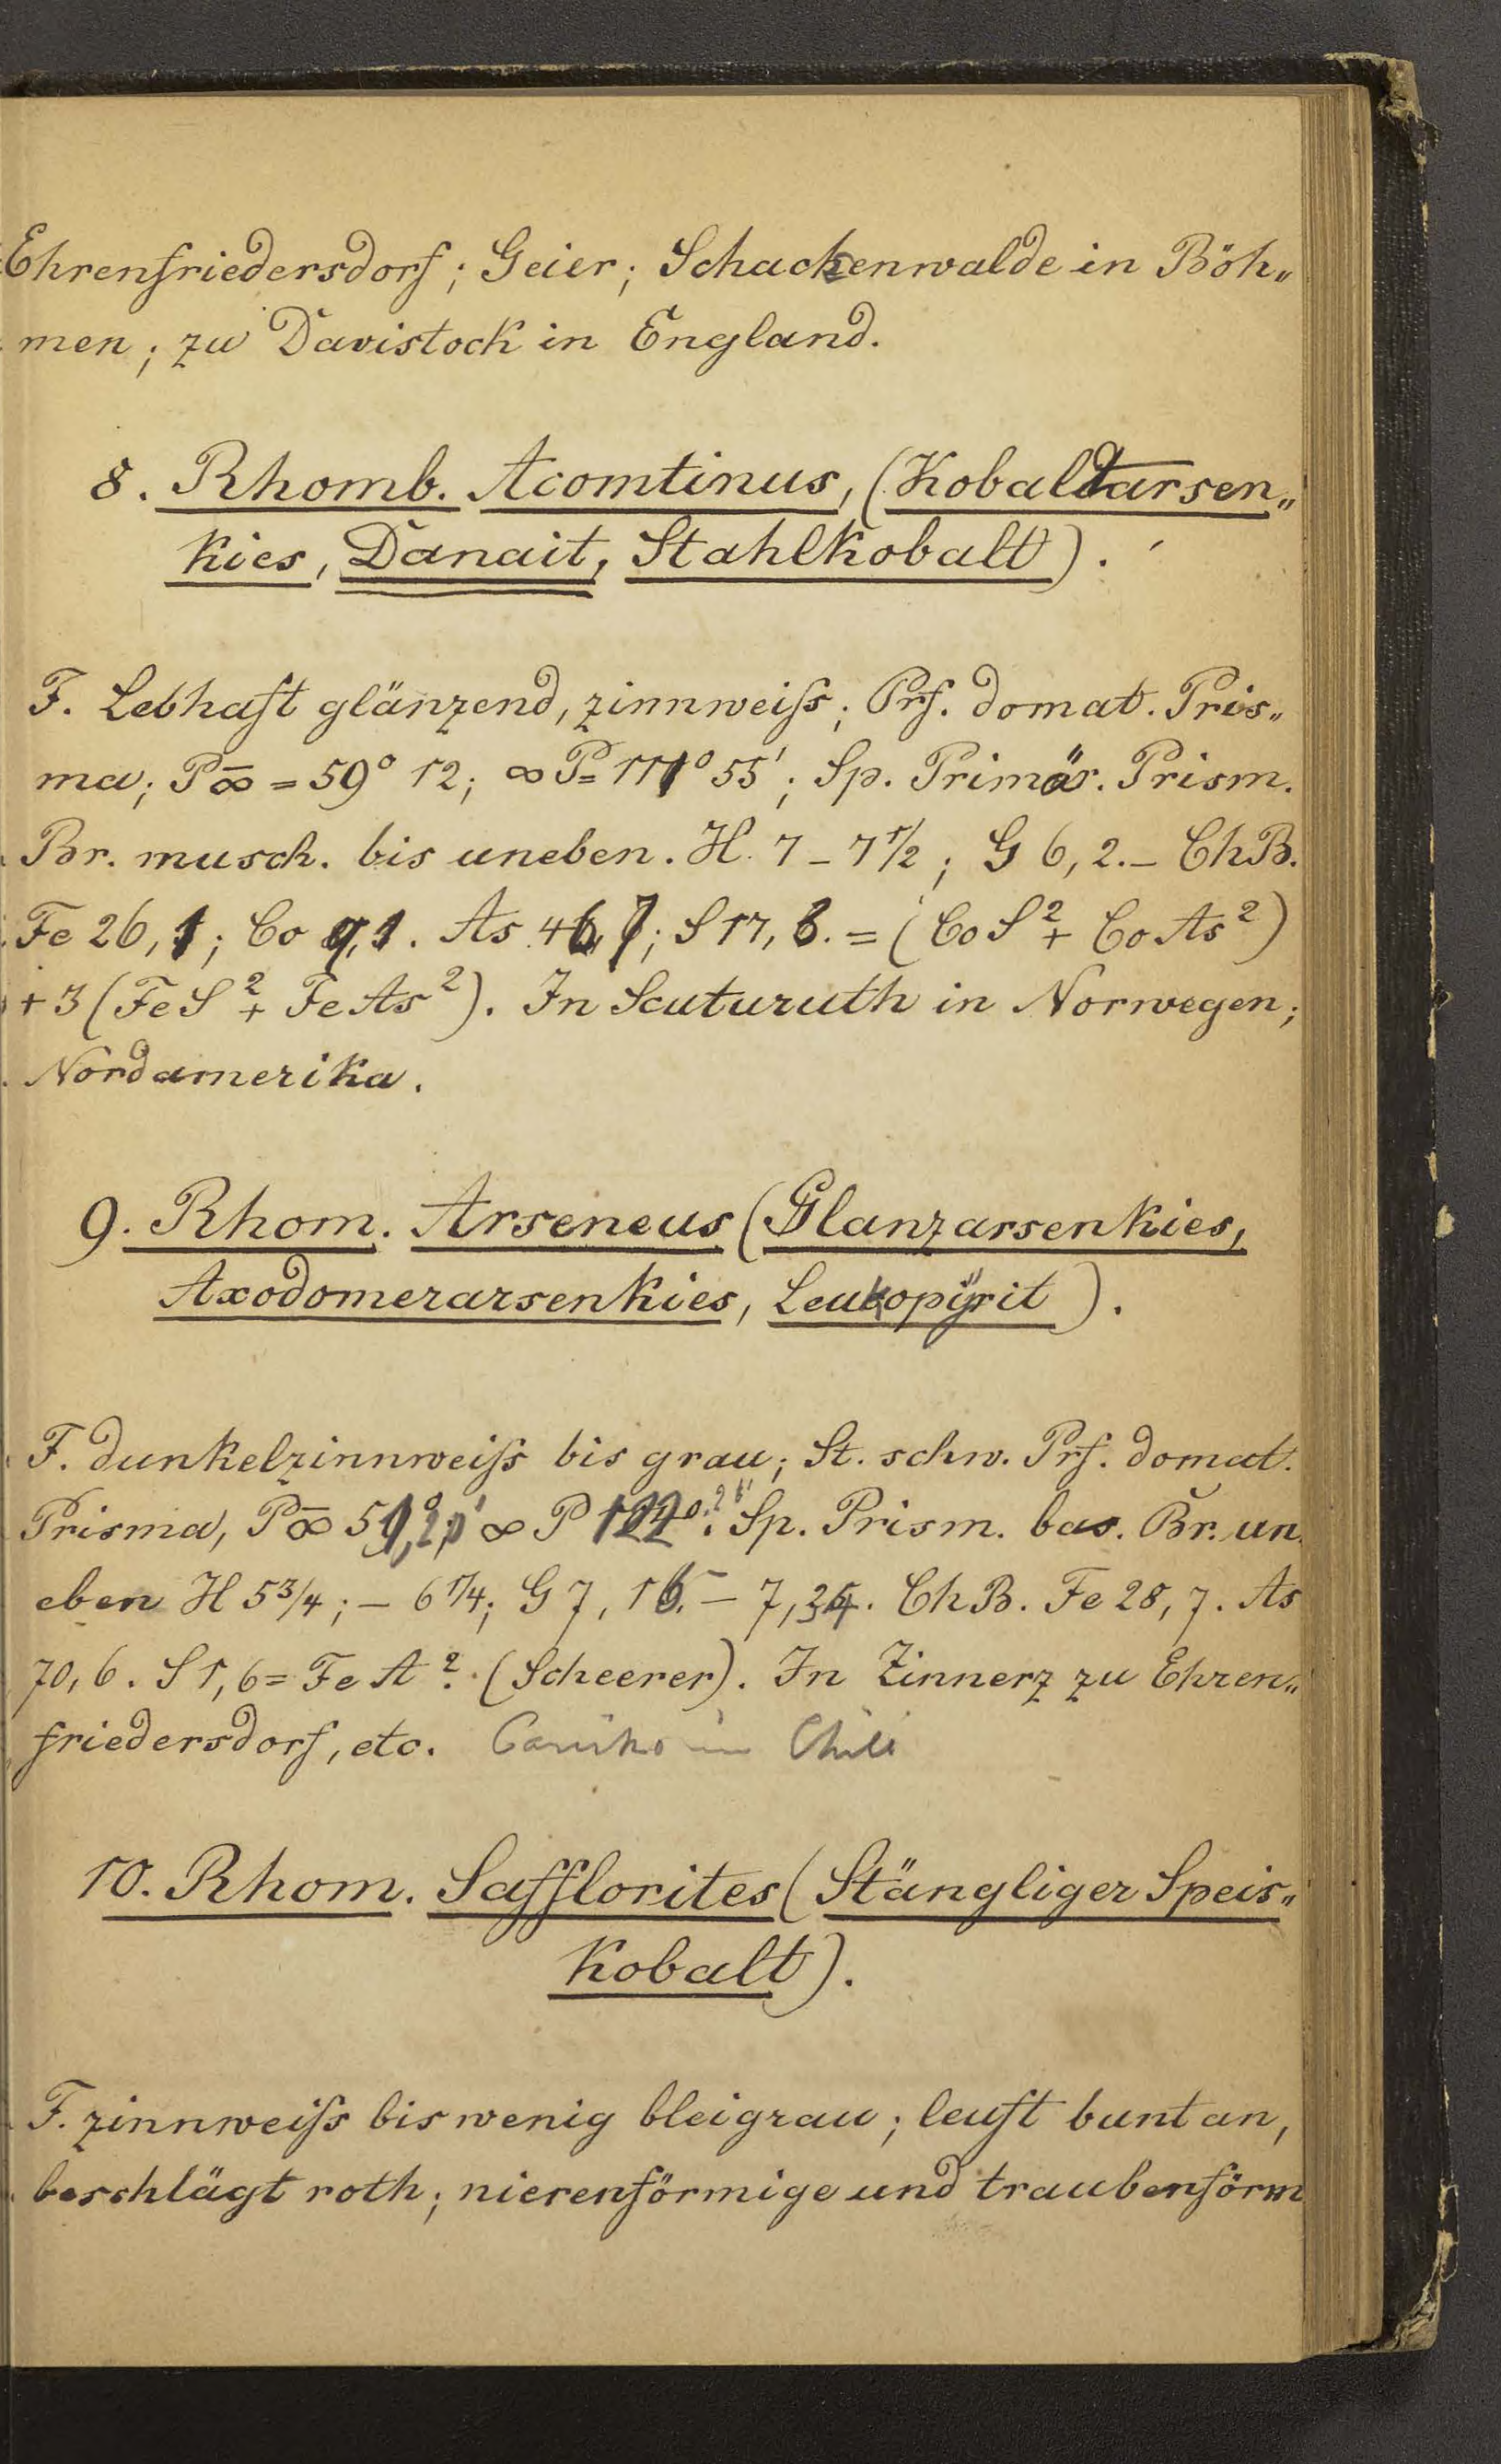 Ehrenfriedersdorf; Geier; Schackenwalde in Böh„
men; zu Davistock in England.
8. Rhomb. Acomtinus, (Kobaltarsen„
kies, Danait, Stahlkobalt).
F. Lebhaft glänzend, zinnweiſs; Prf. domat. Pris„
ma; P∞̄ = 59° 12; ∞P= 111° 55'; Sp. Primär. Prism.
Br. musch. bis uneben. H. 7 – 7 1/2; G 6,2. – ChB.
Fe 26,1; Co 9,1. As 46,7; S 17,8. = (CoS² + CoAs²)
+ 3 (FeS² + FeAs²). In Scuturuth in Norwegen;
Nordamerika.
9. Rhom. Arseneus (Glanzarsenkies,
Axodomerarsenkies, Leukopÿrit).
F. dunkelzinnweiſs bis grau; St. schw. Prf. domat.
Prisma, P∞̄ 51° ∞ P 122° Sp. Prism. bas. Br. un
eben H 5 3/4; – 6 1/4; G 7, – 7, ChB. Fe 28,7. As
70,6. S 1,6 = Fe A². (Scheerer). In Zinnerz zu Ehren„
friedersdorf, etc. in Chili
10. Rhom. Safflorites (Stängliger Speis„
kobalt).
F. zinnweiſs bis wenig bleigrau; leuft bunt an,
beschlägt roth; nierenförmige und traubenförm